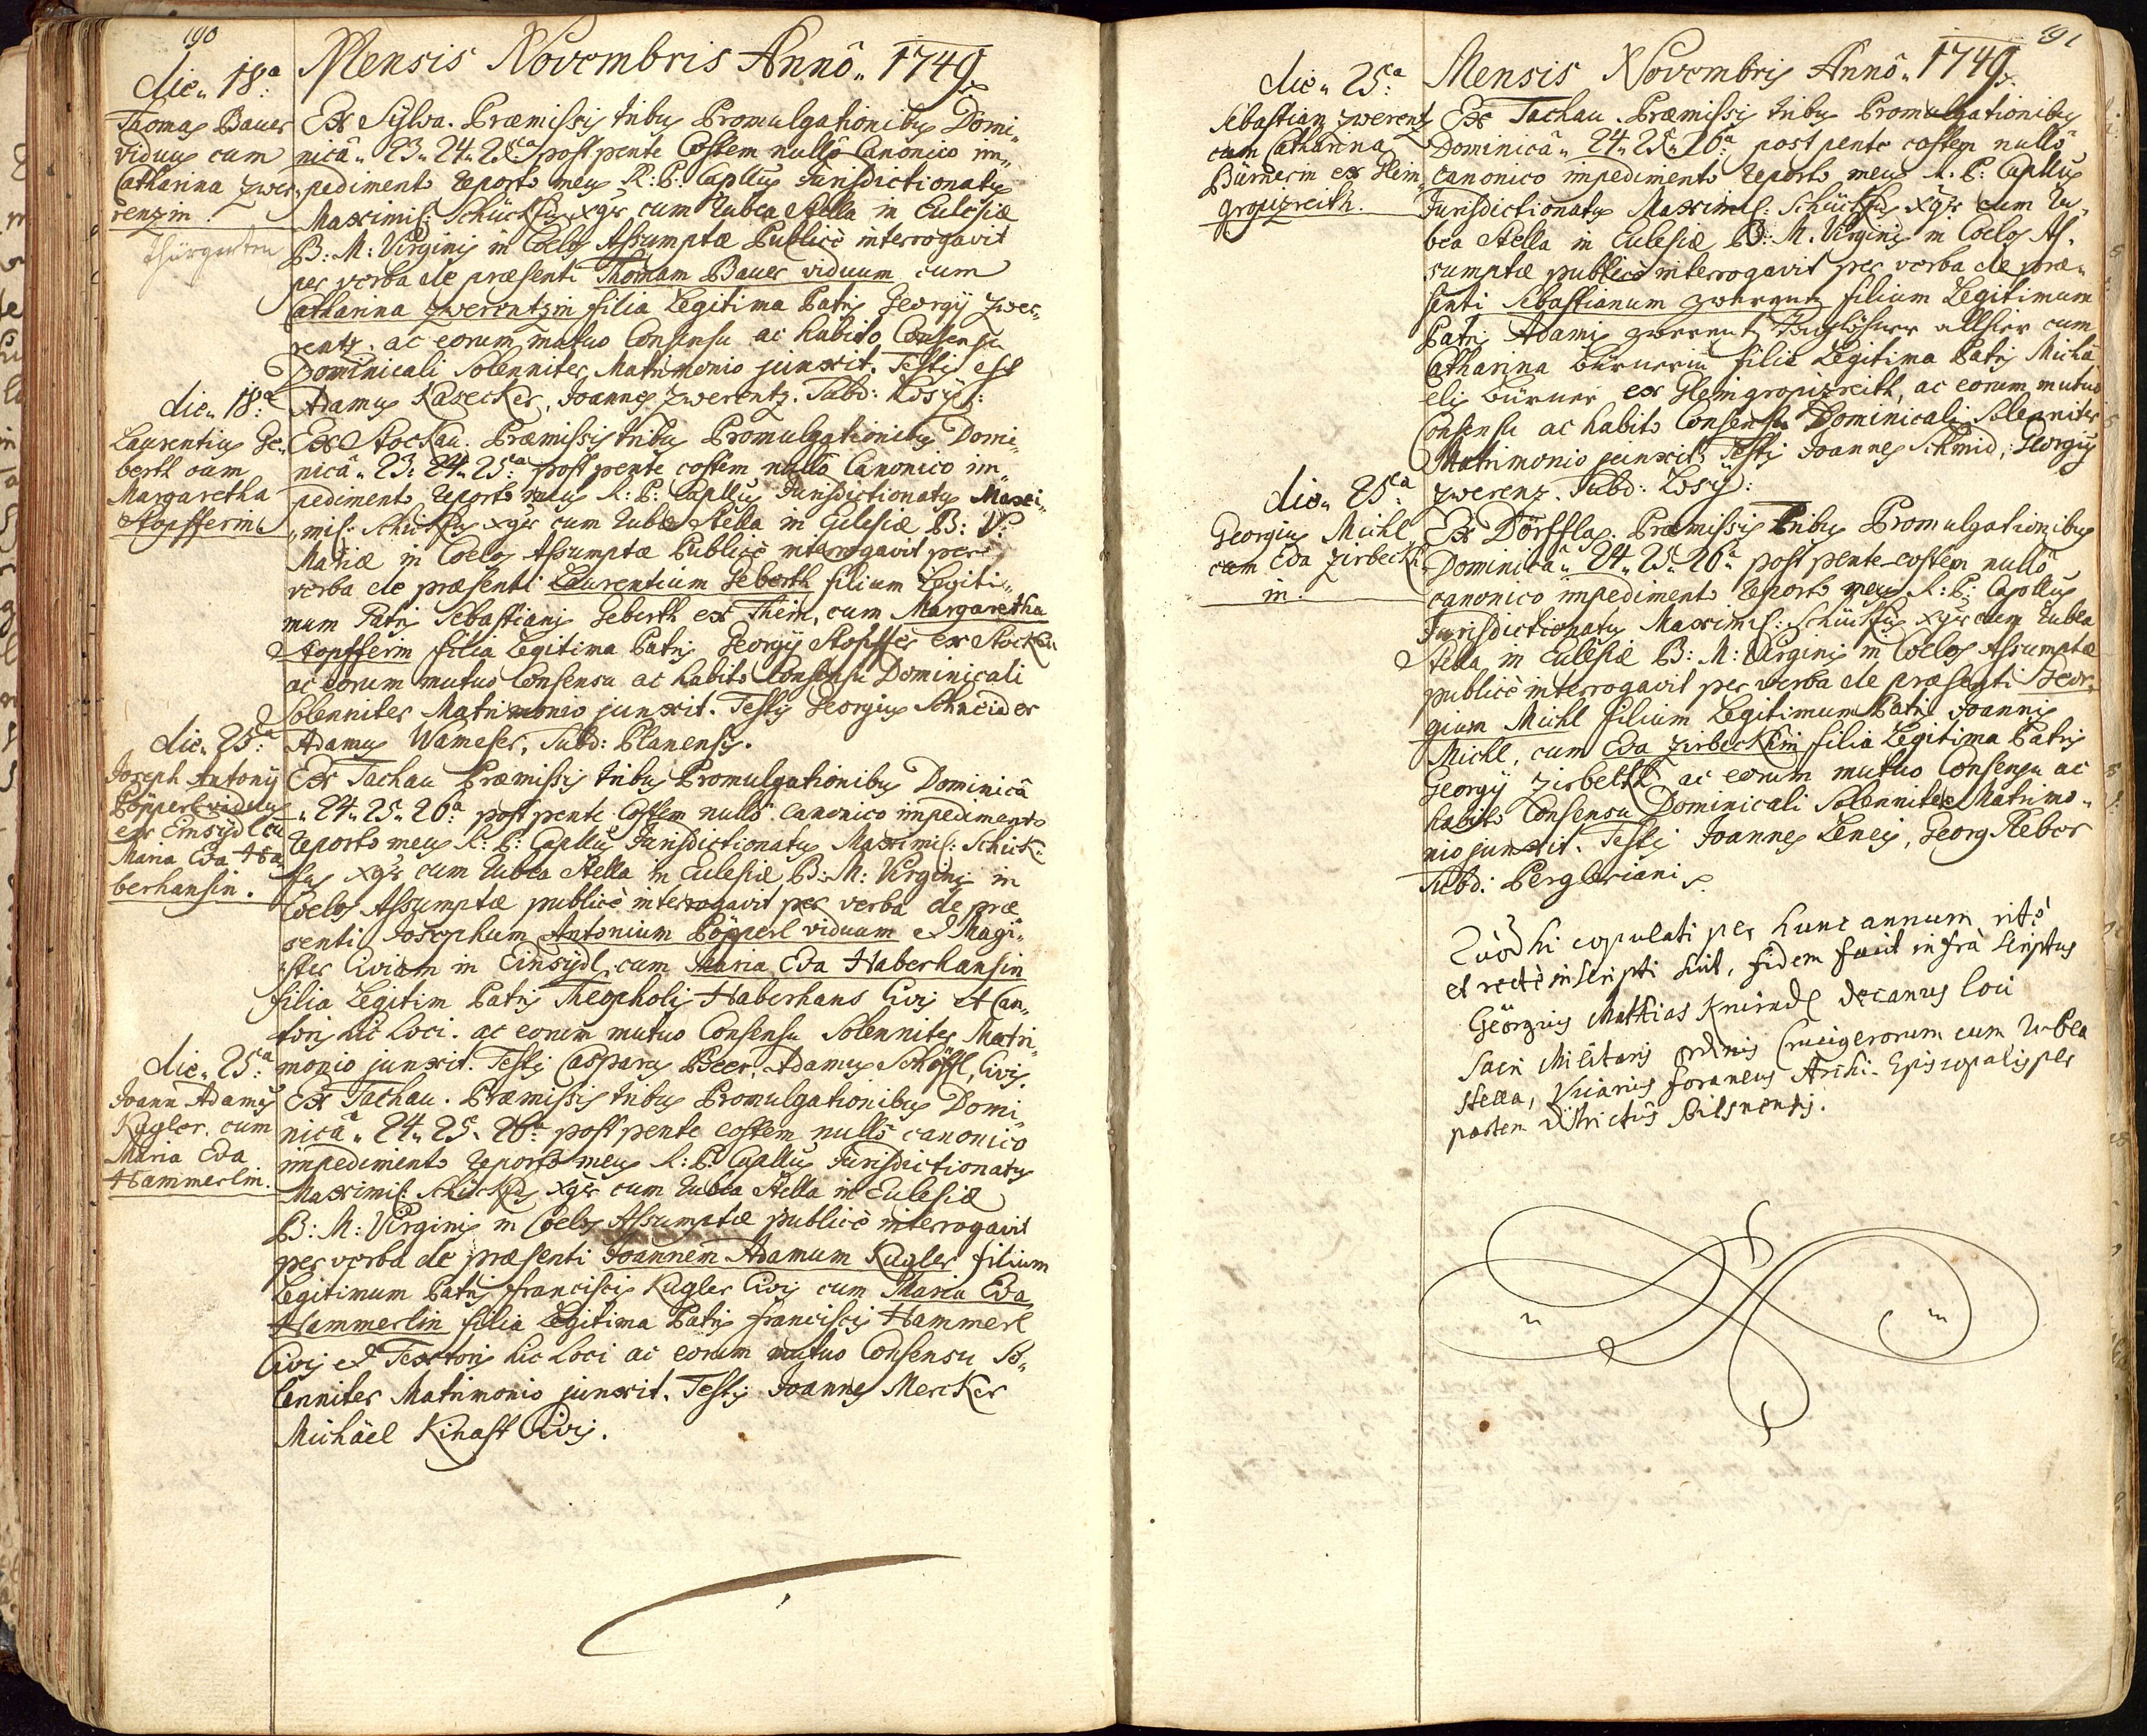 190
Mensis Novembris Annô 1749
die 18ª
Thomas Bauer
viduus cum
Catharina Zwe-
renzin.
Thürgarten
Ex Sylva. Præmissis tribus Promulgationibus Domi-
nicâ 23. 24. 25.ta post pente Costem nullô Canonico im-
pedimento reperto meus R: P: Capllus Jurisdictionatus
Maximil: Schück xgr cum rubea Stella in Eclesiæ
B: M: Virginis in Coelos Assumptæ Publicè interrogavit
per verba de præsenti Thomam Bauer viduum cum
Catharina Zwerentzin filia Legitima Patris Georgij Zwer-
rentz. ac eorum mutuo Consensu ac habito Consensu
Dominicali Solenniter Matrimonio junxit. Testis est
Adamus Rasecker, Joannes Zwerentz. Subd: Losÿ:
die 18.ª
Laurentius Ge-
berth cum
Margaretha
Stopfferin
Ex Stockau. Præmissis tribus Promulgationibus Domi-
nicâ 23. 24. 25.ª post pente costem nullô Canonico im-
pedimento reperto meus R: P: Capllus Jurisdictionatus Maxi-
mil: xgr cum rubea Stella in Eclesiæ B: V:
Mariæ in Coelos Assumptæ Publicè interrogavit per
verba de præsenti Laurentium Geberth filium Legiti-
mum Patris Sebastiani Geberth ex Thein, cum Margaretha
Stopfferin filia Legitima Patris Georgÿ Stopffer ex Stockau
ac eorum mutuo Consensu ac habito Consensu Dominicali
Solenniter Matrimonio junxit. Testis Georgius Schneider
Adamus Wameser, Subd: Planensis.
die 25.ª
Joseph Antonÿ
Pöpperl viduus
ex Einsydl cu
Maria Eva Ha-
berhansin.
Ex Tachau Præmissis tribus Promulgationibus Dominicâ
24. 25. 26.ª post pente Costem nullô canonico impedimento
reperto meus R: P: Capllus Jurisdictionatus Maximil: Schück
xgr cum rubea Stella in Eclesiæ B: M: Virginis in
Coelos Assumptæ publicè interrogavit per verba de præ
senti Josephum Antonium Pöpperl viduum et Magi-
ster Civiam in Einsÿdl, cum Maria Eva Haberhansin
filia Legitim Patris Theopholi Haberhans Civis et Can-
toris hic Loci. ac eorum mutuo Consensu Solenniter Matri-
monio junxit. Testis Casparus Beer, Adamus Schöffl, Civis
die 25.ª
Joann Adamus
Kugler. cum
Maria Eva
Hammerlin.
Ex Tachau. Præmissis tribus Promulgationibus Domi-
nicâ 24. 25. 26.ª post pente costem nullô canonico
impedimento reperto meus R: P: Capllus Jurisdictionatus
Maximil: xgr cum rubea Stella in Eclesiæ
B: M: Virginis in Coelos Assumptæ publicè interrogavit
per verba de præsenti Joannem Adamum Kugler filium
Legitimum Patris Francisci Kugler Civis cum Maria Eva
Hammerlin filia Legitima Patris Francisci Hammerl
Civis et Textoris hic Loci ac eorum mutuo Consensu So-
lenniter Matrimonio junxit. Testis Joannes Mercker
Michäel Kinast Civis.
191
Mensis Novembris Annô 1749
die 25.ª
Sebastian Zwerentz
cum Catharina
Bürnerin ex Klein-
gropizreith.
Ex Tachau. Præmissis tribus Promulgationibus
Dominicâ 24. 25. 26.ª post pente costem nullô
canonico impedimento reperto meus R: P: Capllus
Jurisdictionatus Maximil: xgr cum ru-
bea Stella in Eclesiæ B: M. Virginis in Coelos As-
sumptæ publicè interrogavit per verba de præ-
senti Sebastianum Zwerentz filium Legitimum
Patris Adamis Zwerentz allhier cum
Catharina Bürnerin filia Legitima Patris Micha-
elis Bürner ex Kleingropizreith, ac eorum mutuo
Consensu ac habito Consensu Dominicalis Solenniter
Matrimonio junxit. Testis Joannes Schmid, Georgius
Zwerenz. Subd: Losÿ:
die 25.ª
Georgius Michl
cum Eva Zirbeckh-
in.
Ex Dörfflas. Præmissis tribus Promulgationibus
Dominicâ 24. 25. 26.ª post pente costem nullô
canonico impedimento reperto meus R: P: Capllus
Jurisdictionatus Maximil: xgr cum rubea
Stella in Eclesiæ B: M: Virginis in Coelos Assumptæ
publicè interrogavit per verba de præsenti Geor-
gium Michl filium Legitimum Patris Joannis
Michl, cum Eva Zirbeckhin filia Legitima Patris
Georgÿ ac eorum mutuo Consensu ac
habito Consensu Dominicali Solenniter Matrimo-
nio junxit. Testis Joannes Leneis, Georg Reber
Subd: Pergleriani
Quòd hi copulati per hunc annum ritè
et rectè inscripti sint, fidem facit infrà scriptus
Geörgius Mathias Decanus loci
Sacri Militaris ordinis Crucigerorum cum rubea
stella, Vicarius foraneus Archi-Episcopalis per
partem districtûs Pilsnensis.